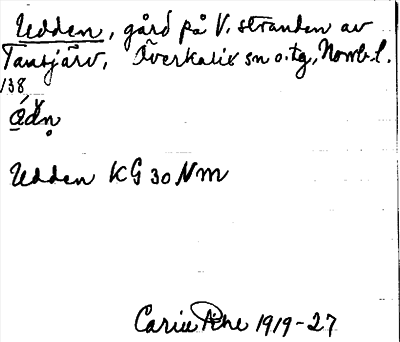 Udden, gård på V. stranden av
Tansjärv, Överkalix sn o. tg, Norrb. l.
138
Udden KG 30 Nm
1919-27